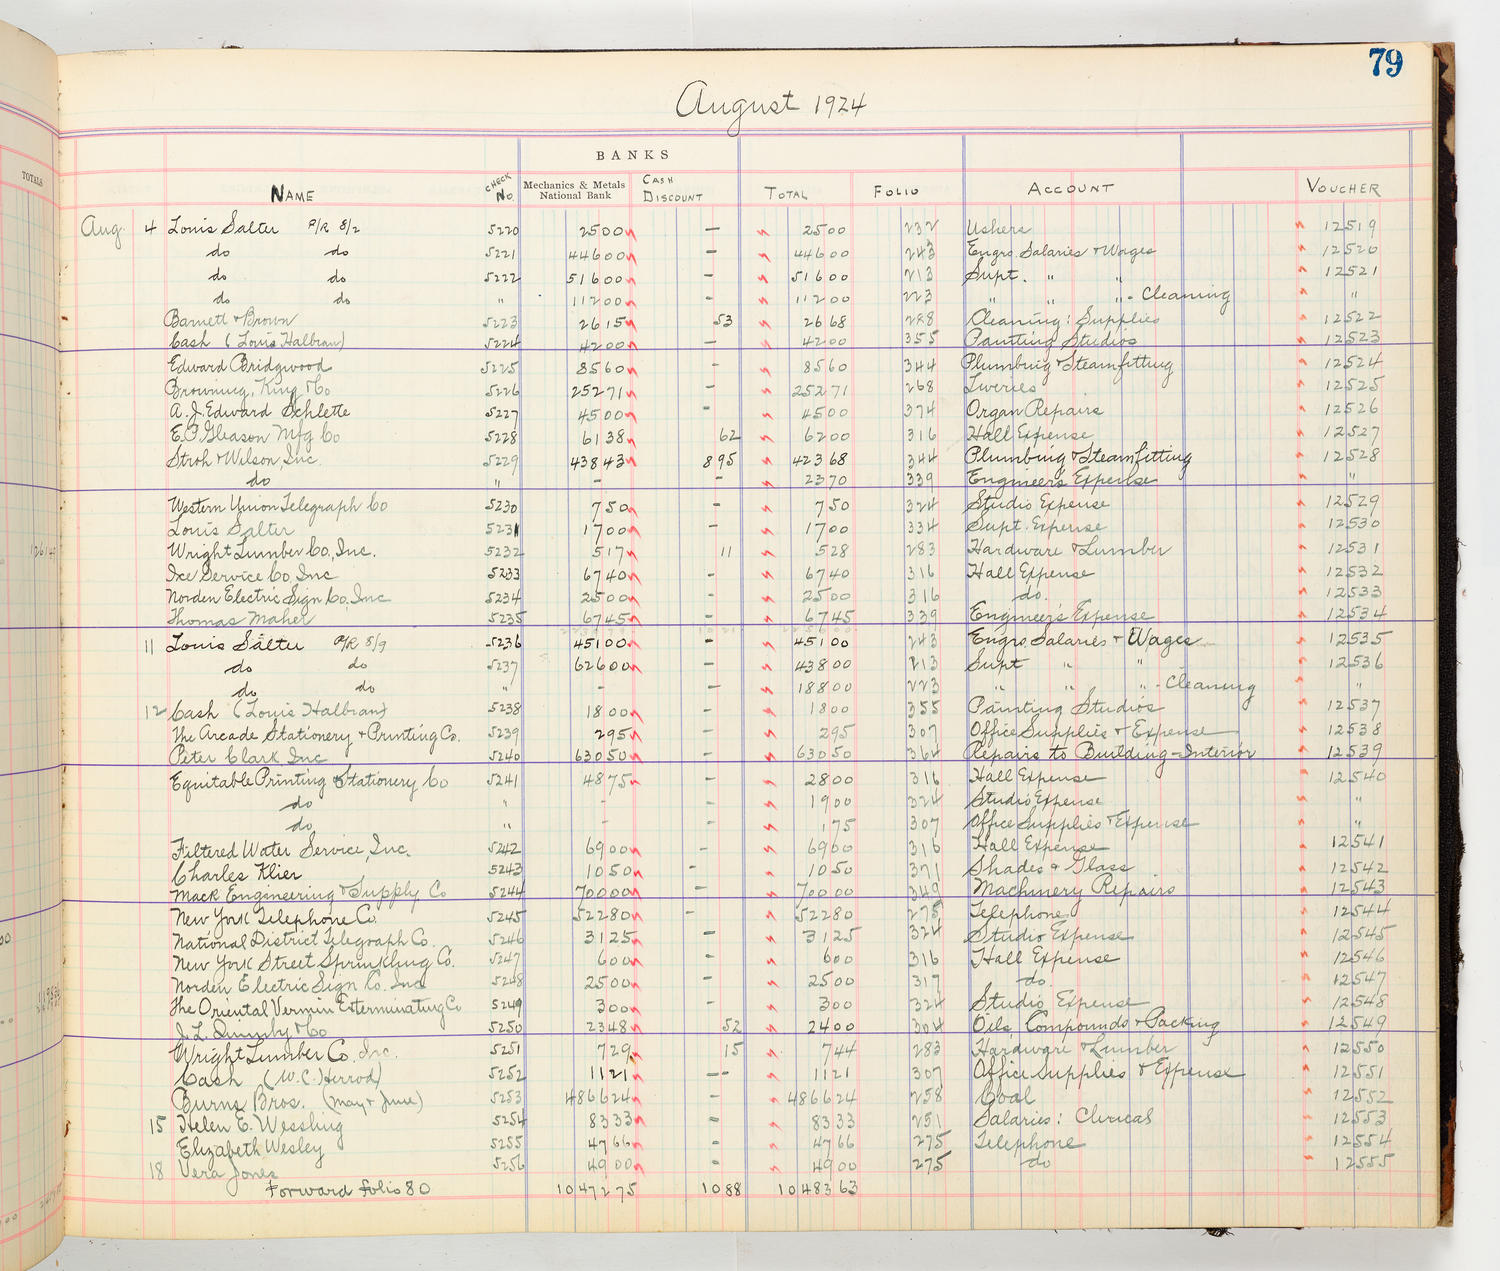 79
August 1924
BANKS
TOTALS
NAME CHECK No. Mechanics & Metals National Bank CASH DISCOUNT TOTAL FOLIO ACCOUNT VOUCHER
Aug. 4 Louis Salter P/R 8/2 5220 2500 — 2500 232 Ushers 12519
do do 5221 44600 — 44600 243 Engrs. Salaries & Wages 12520
do do 5222 51600 — 51600 213 Supt. " " 12521
do do " 11200 - 11200 223 " " " - Cleaning "
Barnett & Brown 5223 2615 53 2668 288 Cleaning: Supplies 12522
Cash (Louis Halbran) 5224 4200 — 4200 355 Painting Studios 12523
Edward Bridgwood 5225 8560 — 8560 344 Plumbing & Steamfitting 12524
Browning, King & Co 5226 25271 - 25271 268 Liveries 12525
A. J. Edward Schlette 5227 4500 - 4500 374 Organ Repairs 12526
E. P. Gleason Mfg Co 5228 6138 62 6200 316 Hall Expense 12527
Stroh & Wilson, Inc. 5229 43843 895 42368 344 Plumbing & Steamfitting 12528
do " - - 2370 339 Engineer's Expense "
Western Union Telegraph Co 5230 750 - 750 324 Studio Expense 12529
Louis Salter 5231 1700 - 1700 334 Supt. Expense 12530
Wright Lumber Co., Inc. 5232 517 11 528 283 Hardware & Lumber 12531
Ice Service Co, Inc 5233 6740 - 6740 316 Hall Expense 12532
Norden Electric Sign Co, Inc 5234 2500 - 2500 316 do. 12533
Thomas Maher 5235 6745 - 6745 339 Engineer's Expense 12534
11 Louis Salter P/R 8/9 5236 45100 - 45100 243 Engrs. Salaries & Wages 12535
do do 5237 62600 - 43800 213 Supt " " 12536
do do " - — 18800 223 " " " - Cleaning "
12 Cash (Louis Halbran) 5238 1800 - 1800 355 Painting Studios 12537
The Arcade Stationery & Printing Co. 5239 295 - 295 307 Office Supplies & Expense 12538
Peter Clark Inc 5240 63050 - 63050 364 Repairs to Building-Interior 12539
Equitable Printing & Stationery Co 5241 4875 - 2800 316 Hall Expense 12540
do " - - 1900 324 Studio Expense "
do " - - 175 307 Office Supplies & Expense "
Filtered Water Service, Inc. 5242 6900 - 6900 316 Hall Expense 12541
Charles Klier 5243 1050 - 1050 371 Shades & Glass 12542
Mack Engineering & Supply Co 5244 70000 - 70000 349 Machinery Repairs 12543
New York Telephone Co. 5245 52280 - 52280 275 Telephone 12544
National District Telegraph Co. 5246 3125 - 3125 324 Studio Expense 12545
New York Street Sprinkling Co. 5247 600 - 600 316 Hall Expense 12546
Norden Electric Sign Co. Inc 5248 2500 - 2500 317 do. 12547
The Oriental Vermin Exterminating Co 5249 300 - 300 324 Studio Expense 12548
J. L. Quimby & Co 5250 2348 52 2400 304 Oils, Compounds & Packing 12549
Wright Lumber Co. Inc. 5251 729 15 744 283 Hardware & Lumber 12550
Cash (W. C. Herrod) 5252 1121 — 1121 307 Office Supplies & Expense 12551
Burns Bros. (May & June) 5253 486624 - 486624 258 Coal 12552
15 Helen E. Wessling 5254 8333 - 8333 251 Salaries: Clerical 12553
Elizabeth Wesley 5255 4766 - 4766 275 Telephone 12554
18 Vera Jones 5256 4900 - 4900 275 do 12555
Forward folio 80 1047275 1088 1048363